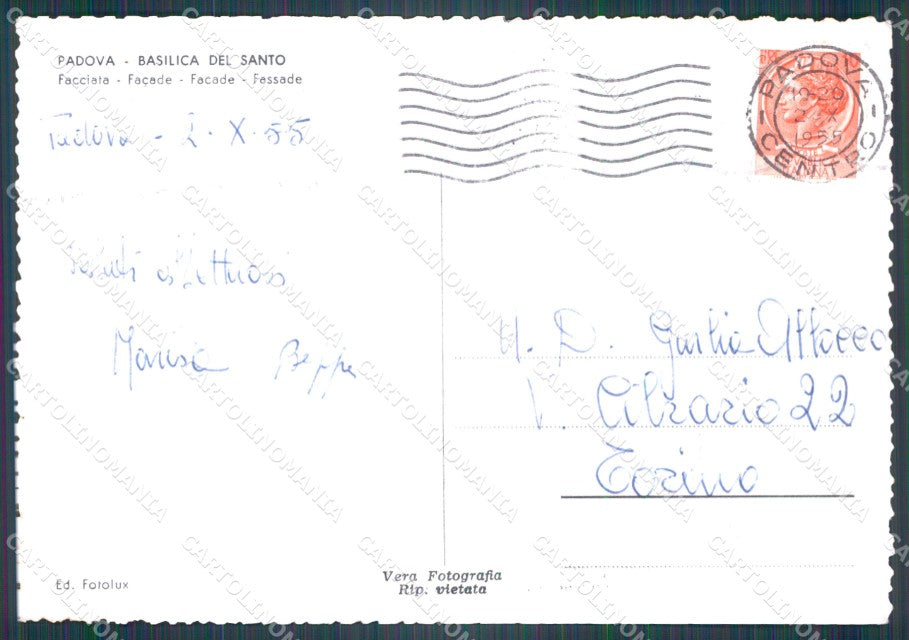 PADOVA - BASILICA DEL SANTO
Facciata - Façade - Facade - Fassade
Padova - 2 · X · 55
PADOVA
CENTRO
1955
Saluti affettuosi
Marisa Beppe
Giulia
V. Cibrario 22
Torino
Ed. Fotolux
Vera Fotografia
Rip. vietata
CARTOLINOMANIA